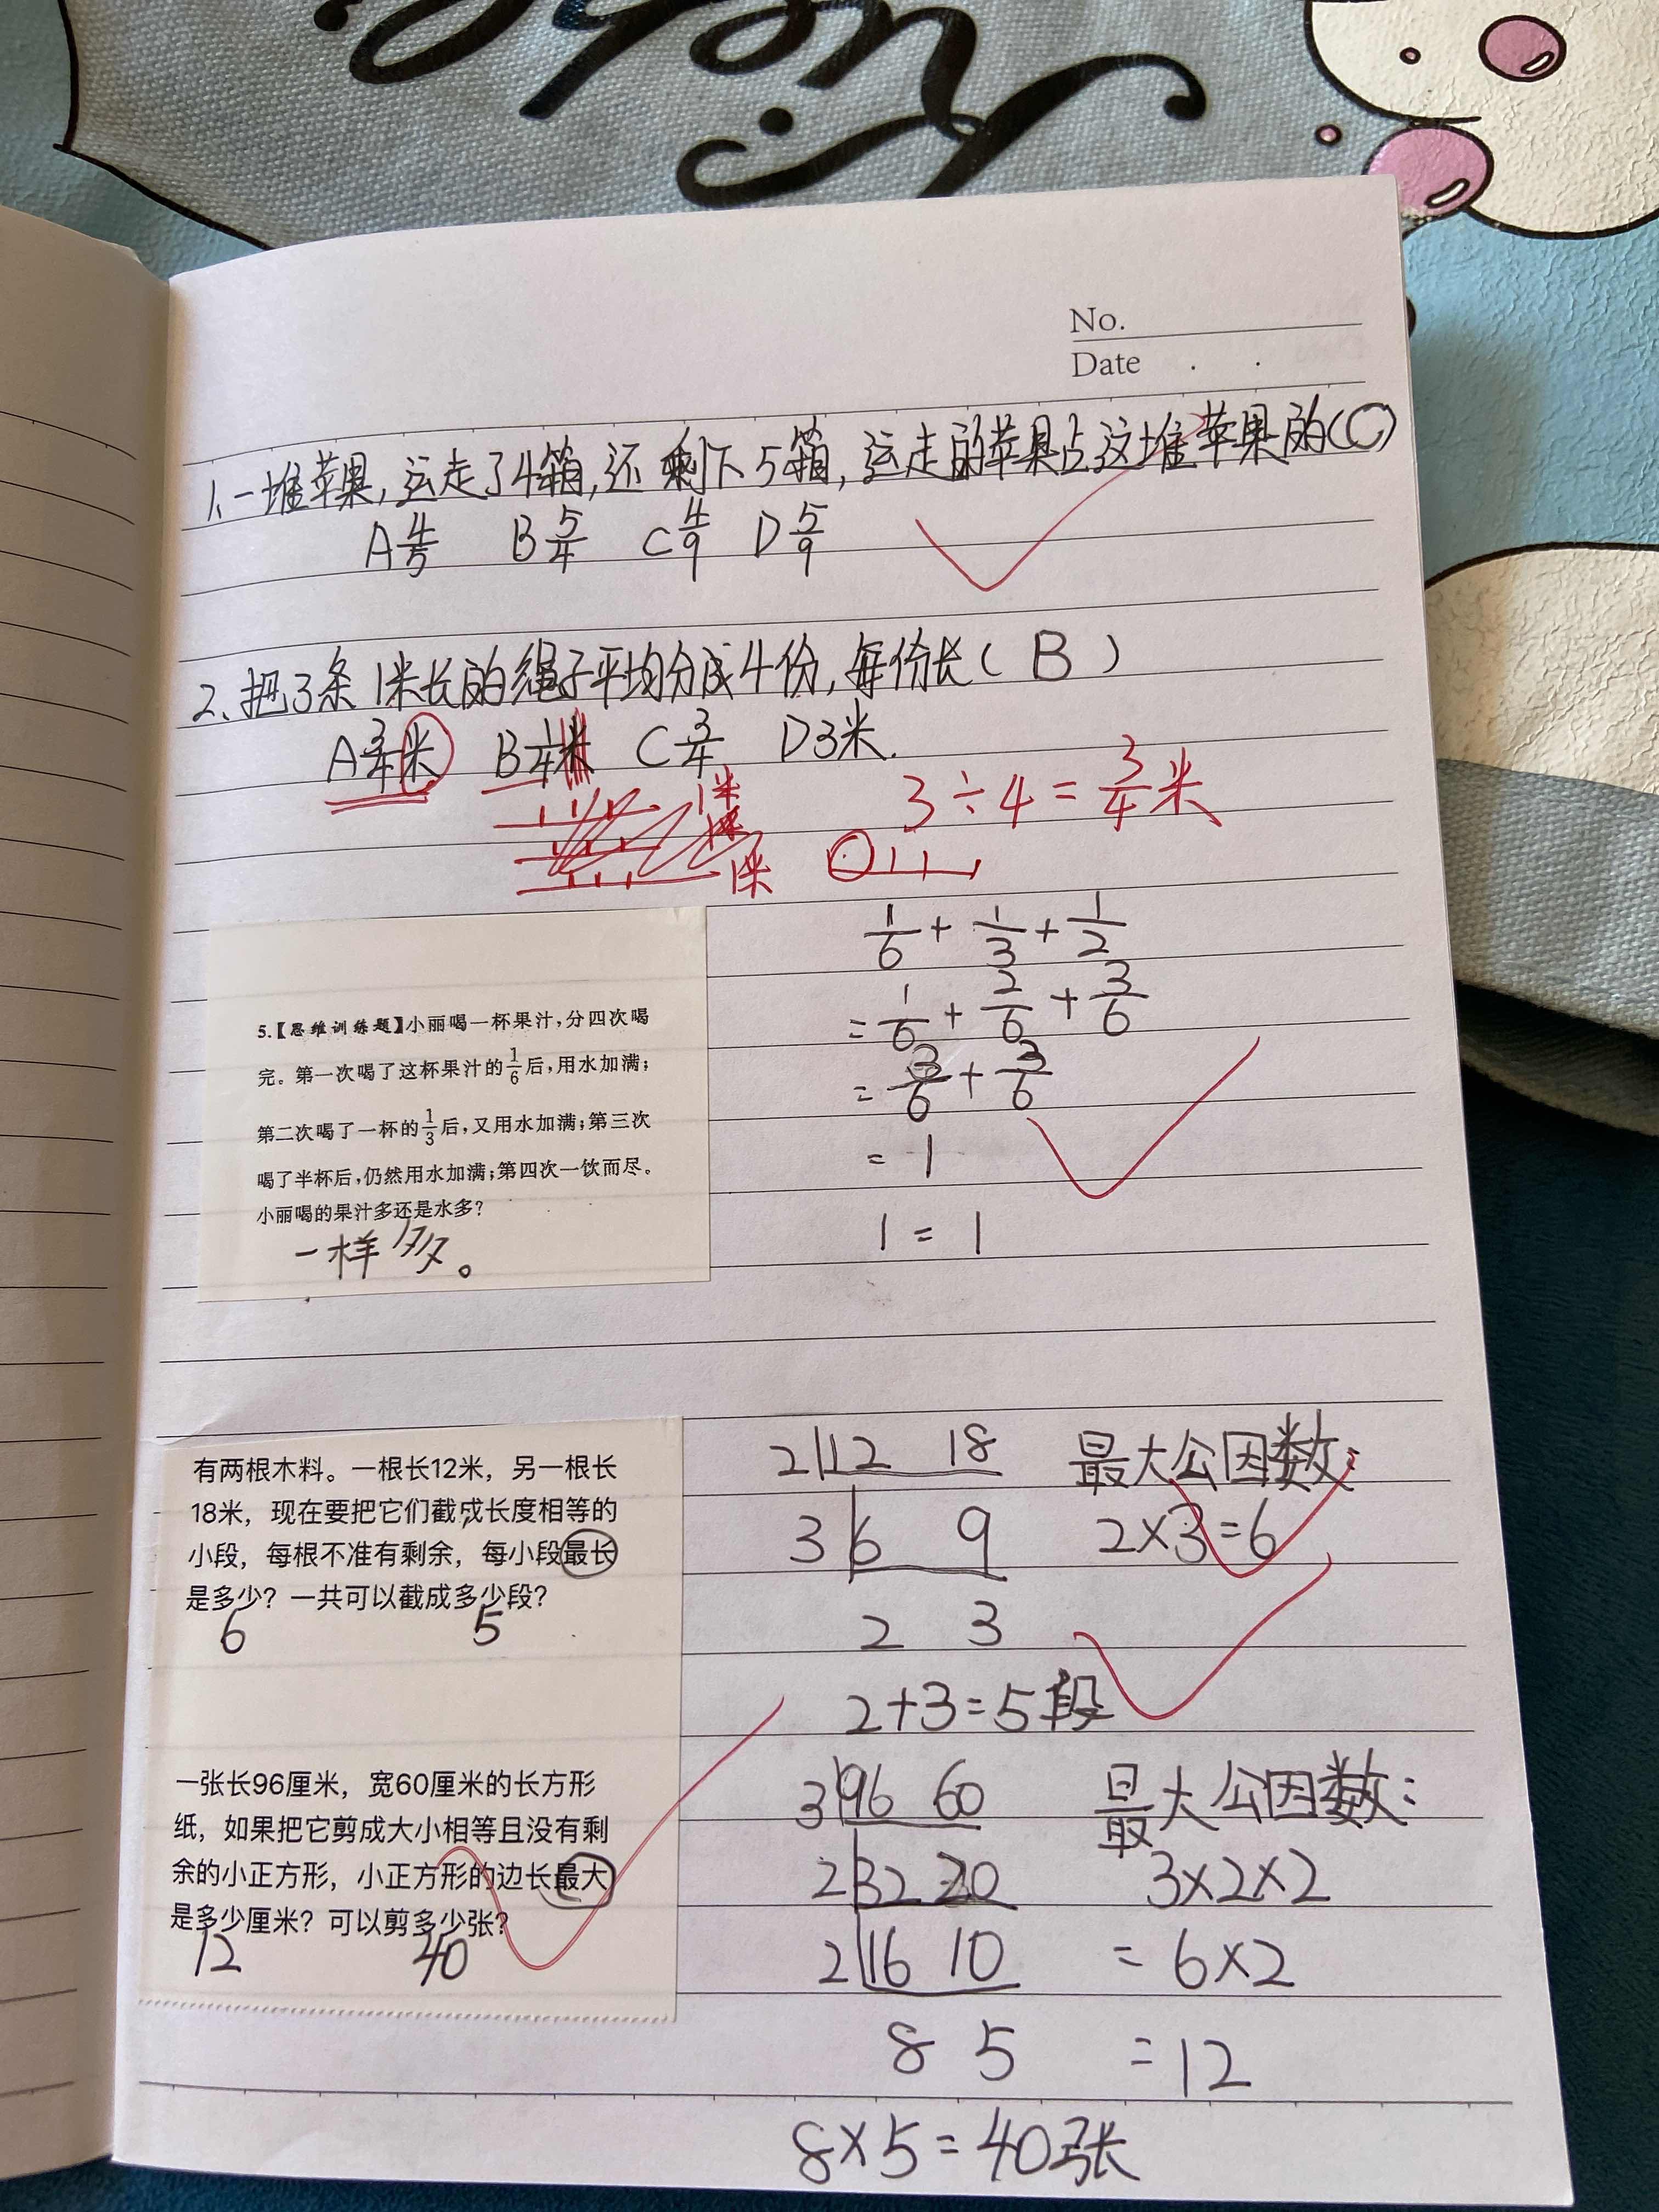 No.
Date
1.一堆苹果,运走了4箱,还剩下5箱,运走的苹果占这堆苹果的(C)
A 4/5 B 5/4 C 4/9 D 5/9
2.把3条1米长的绳子平均分成4份,每份长( B )
A 3/4米 B 1/4米 C 3/4 D 3米.
1米
1米
1米
3÷4=3/4米
5.【思维训练题】小丽喝一杯果汁,分四次喝
完。第一次喝了这杯果汁的1/6后,用水加满;
第二次喝了一杯的1/3后,又用水加满;第三次
喝了半杯后,仍然用水加满;第四次一饮而尽。
小丽喝的果汁多还是水多?
一样多。
1/6+1/3+1/2
=1/6+2/6+3/6
=3/6+3/6
=1
1=1
有两根木料。一根长12米，另一根长
18米，现在要把它们截成长度相等的
小段，每根不准有剩余，每小段最长
是多少？一共可以截成多少段？
6 5
2 12 18
3 6 9
2 3
最大公因数:
2×3=6
2+3=5段
一张长96厘米，宽60厘米的长方形
纸，如果把它剪成大小相等且没有剩
余的小正方形，小正方形的边长最大
是多少厘米？可以剪多少张？
12 40
3 96 60
2 32 20
2 16 10
8 5
最大公因数:
3×2×2
=6×2
=12
8×5=40张